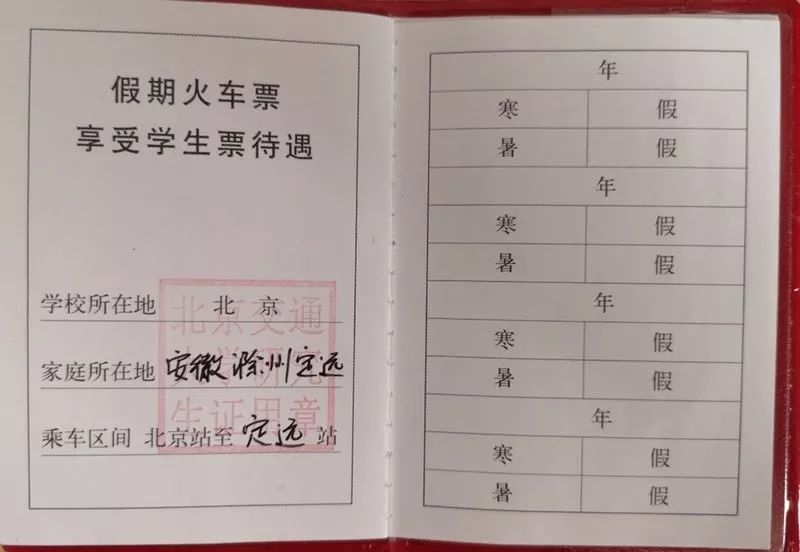 假期火车票
享受学生票待遇
学校所在地 北京
家庭所在地 安徽滁州定远
乘车区间 北京站至 定远 站
北京交通
大学研究
生证用章
年
寒 假
暑 假
年
寒 假
暑 假
年
寒 假
暑 假
年
寒 假
暑 假